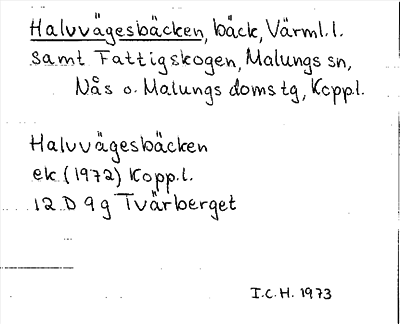 Halvvägesbäcken, bäck, Värml. l.
samt Fattigskogen, Malungs sn,
Nås o. Malungs domstg, Kopp.l.
Halvvägesbäcken
ek. (1972) Kopp.l.
12 D 9 g Tvärberget
I.C.H. 1973